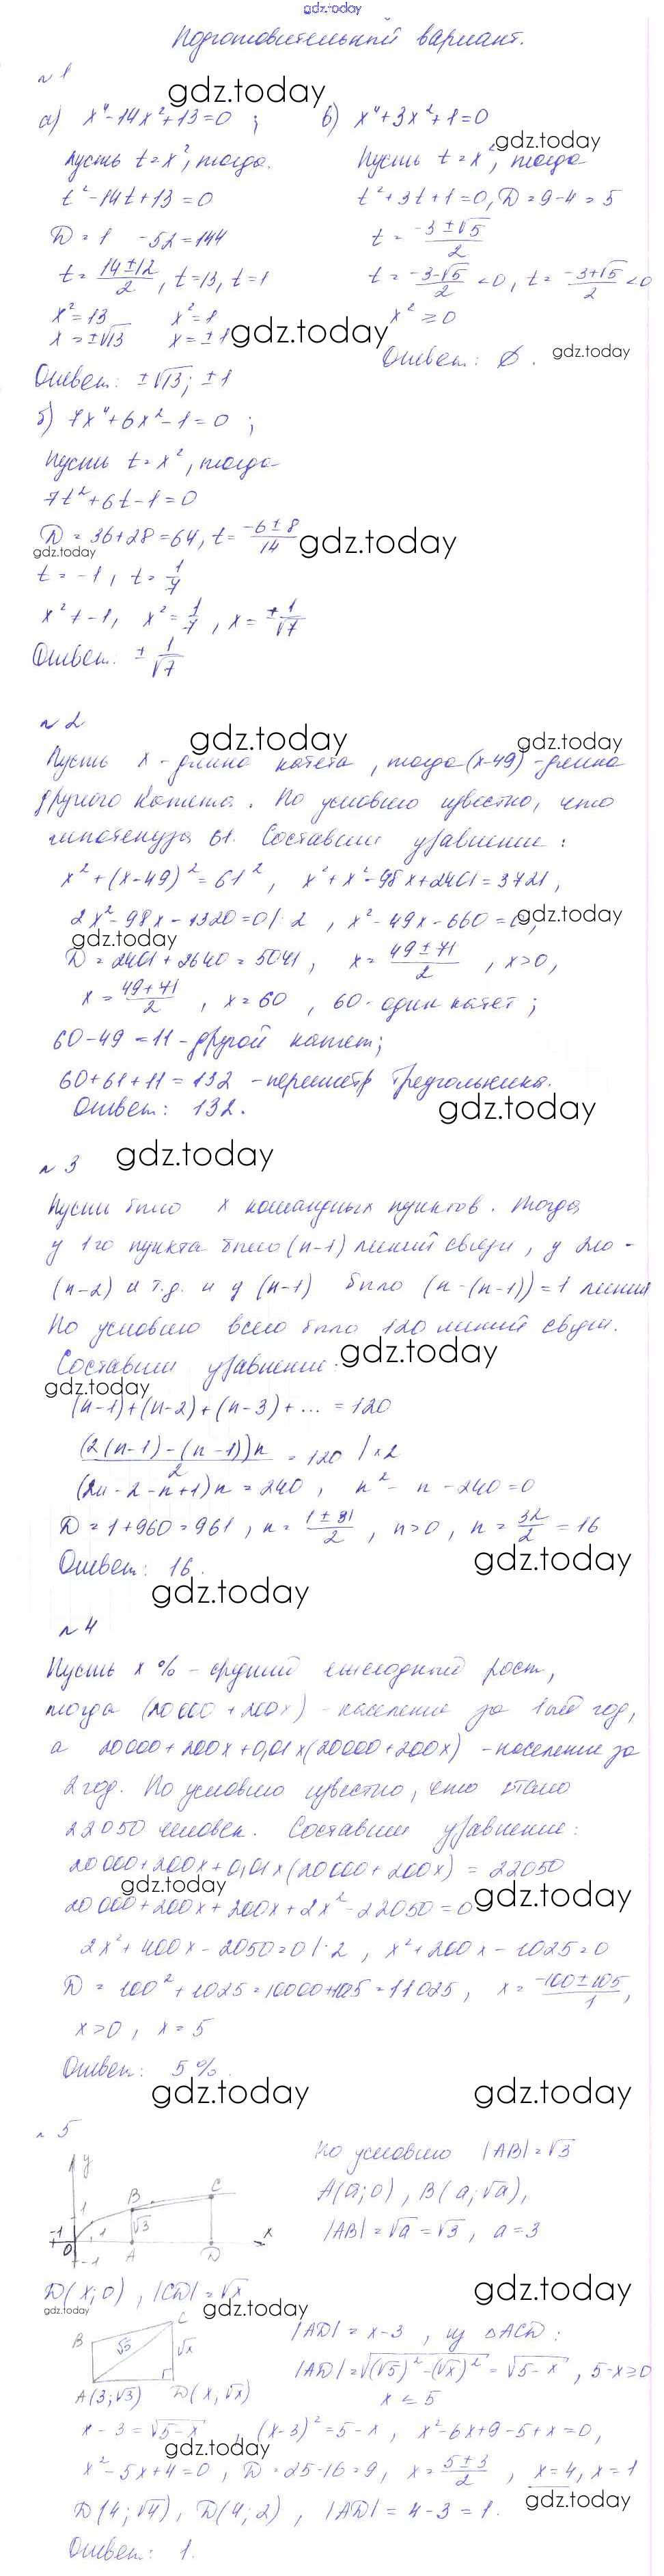 gdz.today
Подготовительный вариант.
№1
gdz.today
а) x⁴-14x²+13=0 ;
Пусть t=x², тогда.
t²-14t+13=0
D=1 -52=144
t=(14±12)/2, t=13, t=1
x²=13 x²=1
x=±√13 x=±1
gdz.today
Ответ: ±√13; ±1
в) x⁴+3x²+1=0
gdz.today
Пусть t=x², тогда
t²+3t+1=0, D=9-4=5
t=(-3±√5)/2
t=(-3-√5)/2 <0, t=(-3+√5)/2 <0
x²≥0
Ответ: ∅.
gdz.today
б) 7x⁴+6x²-1=0 ;
Пусть t=x², тогда
7t²+6t-1=0
D=36+28=64, t=(-6±8)/14
gdz.today
gdz.today
t=-1, t=1/7
x²≠-1, x²=1/7, x=±1/√7
Ответ: ±1/√7
№2
gdz.today
gdz.today
Пусть x - длина катета, тогда (x-49) - длина
другого катета. По условию известно, что
гипотенуза 61. Составим уравнение:
x²+(x-49)²=61², x²+x²-98x+2401=3721,
2x²-98x-1320=0 |:2, x²-49x-660=0,
gdz.today
gdz.today
D=2401+2640=5041, x=(49±71)/2, x>0,
x=(49+71)/2, x=60, 60 - один катет;
60-49=11 - другой катет;
60+61+11=132 - периметр треугольника.
Ответ: 132.
gdz.today
№3
gdz.today
Пусть было x командных пунктов. Тогда
у 1го пункта было (n-1) линий связи, у 2го -
(n-2) и т.д. и у (n-1) было (n-(n-1))=1 линия
По условию всего было 120 линий связи.
Составим уравнение:
gdz.today
gdz.today
(n-1)+(n-2)+(n-3)+...=120
((2(n-1)-(n-1))n)/2=120 |×2
(2n-2-n+1)n=240, n²-n-240=0
D=1+960=961, n=(1±31)/2, n>0, n=32/2=16
Ответ: 16.
gdz.today
gdz.today
№4
Пусть x% - средний ежегодный рост,
тогда (20000+200x) - население за 1ый год,
а 20000+200x+0,01x(20000+200x) - население за
2 год. По условию известно, что стало
22050 человек. Составим уравнение:
20000+200x+0,01x(20000+200x)=22050
gdz.today
gdz.today
20000+200x+200x+2x²-22050=0
2x²+400x-2050=0 |:2, x²+200x-1025=0
D=100²+1025=10000+1025=11025, x=(-100±105)/1,
x>0, x=5
Ответ: 5%.
gdz.today
gdz.today
№5
y
1
B
C
√3
-1
0
1
-1
A
D
x
По условию |AB|=√3
A(a;0), B(a;√a),
|AB|=√a=√3, a=3
D(x;0), |CD|=√x
gdz.today
gdz.today
gdz.today
B
C
√5
√x
A(3;√3) D(x,√x)
|AD|=x-3, из △ACD:
|AD|=√((√5)²-(√x)²)=√(5-x), 5-x≥0
x≤5
x-3=√(5-x), (x-3)²=5-x, x²-6x+9-5+x=0,
gdz.today
x²-5x+4=0, D=25-16=9, x=(5±3)/2, x=4, x=1
D(4;√4), D(4;2), |AD|=4-3=1.
gdz.today
Ответ: 1.